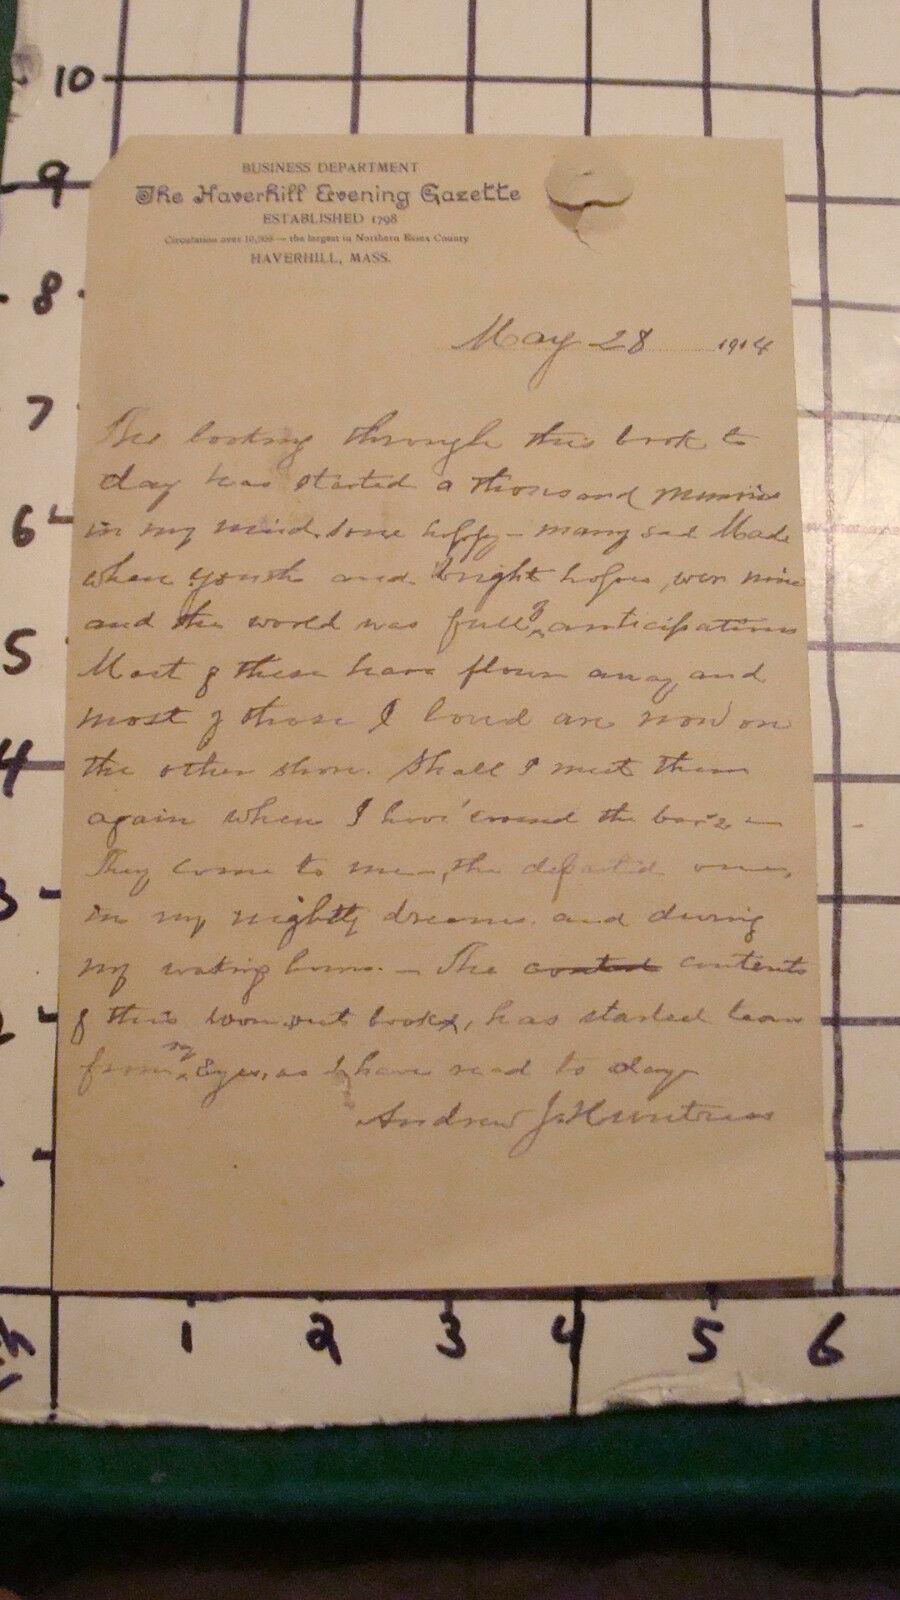 10
9
8
7
6
5
4
3
2
1
1 2 3 4 5 6
BUSINESS DEPARTMENT
The Haverhill Evening Gazette
ESTABLISHED 1798
Circulation over 10,000 — the largest in Northern Essex County
HAVERHILL, MASS.
May 28 1914
The looking through this book to
day has started a thousand memories
in my mind. Some happy - many sad Made
when youth and bright hopes, wer mine
and the world was full of anticipations
Most of these have flown away and
most of those I loved are now on
the other shore. Shall I meet them
again when I have crossed the bar? —
They come to me —, the departed ones,
in my nightly dreams. and during
my waking hours. — The contents
of this worn out book, has started tears
from my Eyes, as I have read to day
Andrew J. Huntress